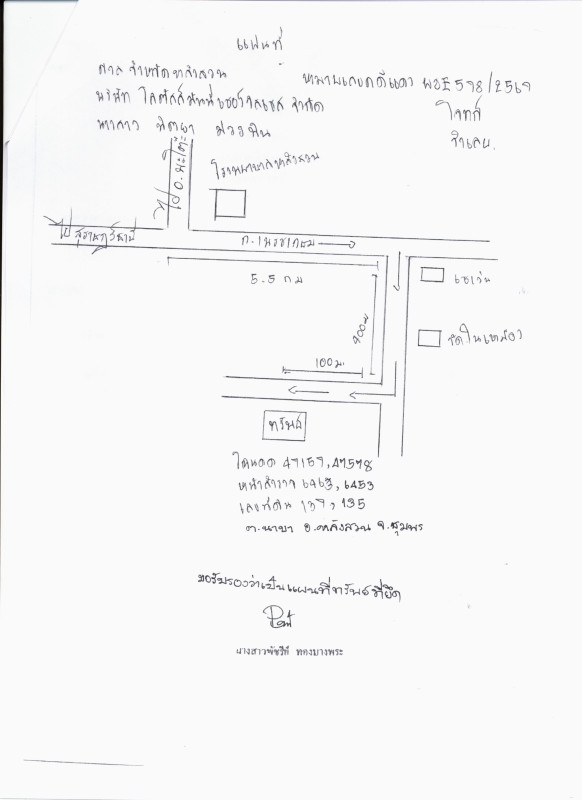 แผนที่
ศาล จังหวัดหลังสวน หมายเลขคดีแดง ผบE598/2569
บริษัท จำกัด โจทก์
นางสาว จำเลย
ไป อ.
โรงพยาบาลหลังสวน
ไปสุราษฎร์ธานี
ถ.เพชรเกษม
5.5 กม
เซเว่น
900ม
วัดในเหมือง
100ม.
ทรัพย์
โฉนด 47157,47578
หน้าสำรวจ 6463, 6453
เลขที่ดิน 137, 135
ต.นาขา อ.หลังสวน จ.ชุมพร
ขอรับรองว่าเป็นแผนที่ทรัพย์ที่ยึด
นางสาวพัชรีย์ ทองบางพระ